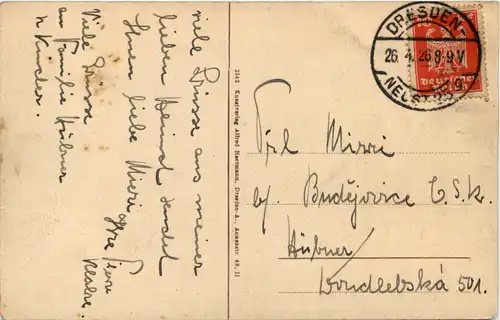 viele Grüsse aus meiner
lieben Heimat sendet
Ihnen liebe Mizzi
Ihre
Viele Grüsse
an Familie Hübner
u. Kinder.
2542 Kunstverlag Alfred Hartmann, Dresden-A., Annenstr. 48, II
DRESDEN-
26. 4. 26 8-9V
NEUST. 25
g
Deutsche
Frl Mizzi
Budějovice Č.S.R.
Hübner
Doudlebská 501.